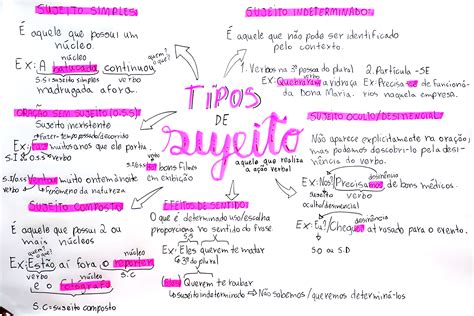 TIPOS
DE
sujeito
aquele que realiza
a ação verbal
SUJEITO SIMPLES
É aquele que possui um
núcleo.
quem?
o quê?
Ex: A batucada continuou
S.S: sujeito simples verbo
madrugada afora.
SUJEITO INDETERMINADO
É aquele que não pode ser identificado
pelo contexto.
1. Verbos na 3ª pessoa do plural
Ex: Quebraram a vidraça
da Dona Maria.
2. Partícula -SE
Ex: Precisa-se de funcioná-
rios naquela empresa.
ORAÇÃO SEM SUJEITO (O.S.S)
Sujeito inexistente
Fazer: tempo passado/decorrido
muitos anos que ele partiu.
S.I/O.S.S verbo
S.I/o.s.s Ventou muito ontem à noite
verbo Fenômeno da natureza
verbo
bons filmes
S.I/O.S.S em exibição
SUJEITO OCULTO/DESINENCIAL
Não aparece explicitamente na oração,
mas podemos descobri-lo pela desi-
nência do verbo.
desinência
Ex: Nós? Precisamos de bons médicos.
sujeito verbo
oculto/desinencial
desinência
Ex: Eu? / Cheguei atrasado para o evento.
verbo
S.O ou S.D
SUJEITO COMPOSTO
É aquele que possui 2 ou
mais núcleos
núcleo
Ex: Estão aí fora o repórter
verbo núcleo S.C
e o fotógrafo
S.C = sujeito composto
EFEITOS DE SENTIDO
O que é determinado uso/escolha
proporciona no sentido da frase.
Ex: Eles querem te matar
3ª do plural
Querem te roubar
sujeito indeterminado → Não sabemos/queremos determiná-los.